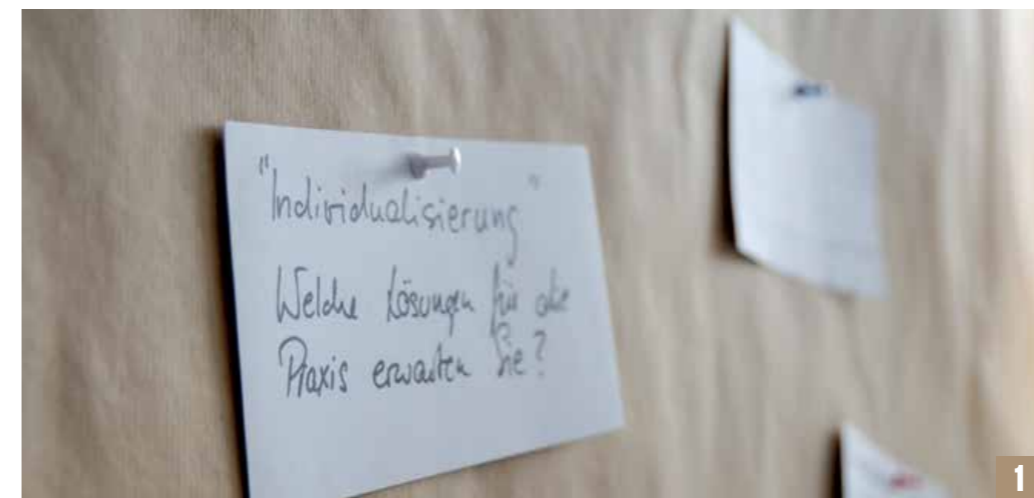 "Individualisierung"
Welche Lösungen für die
Praxis erwarten Sie?
1